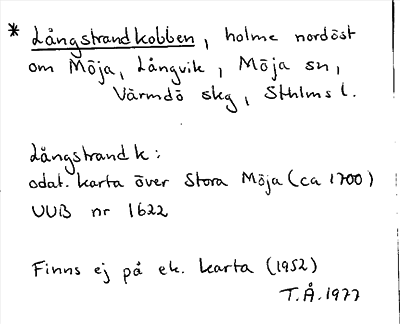 * Långstrandkobben, holme nordöst
om Möja, Långvik, Möja sn,
Värmdö skg, Sthlms l.
Långstrand k:
odat. karta över Stora Möja (ca 1700)
UUB nr 1622
Finns ej på ek. karta (1952)
T.Å. 1977